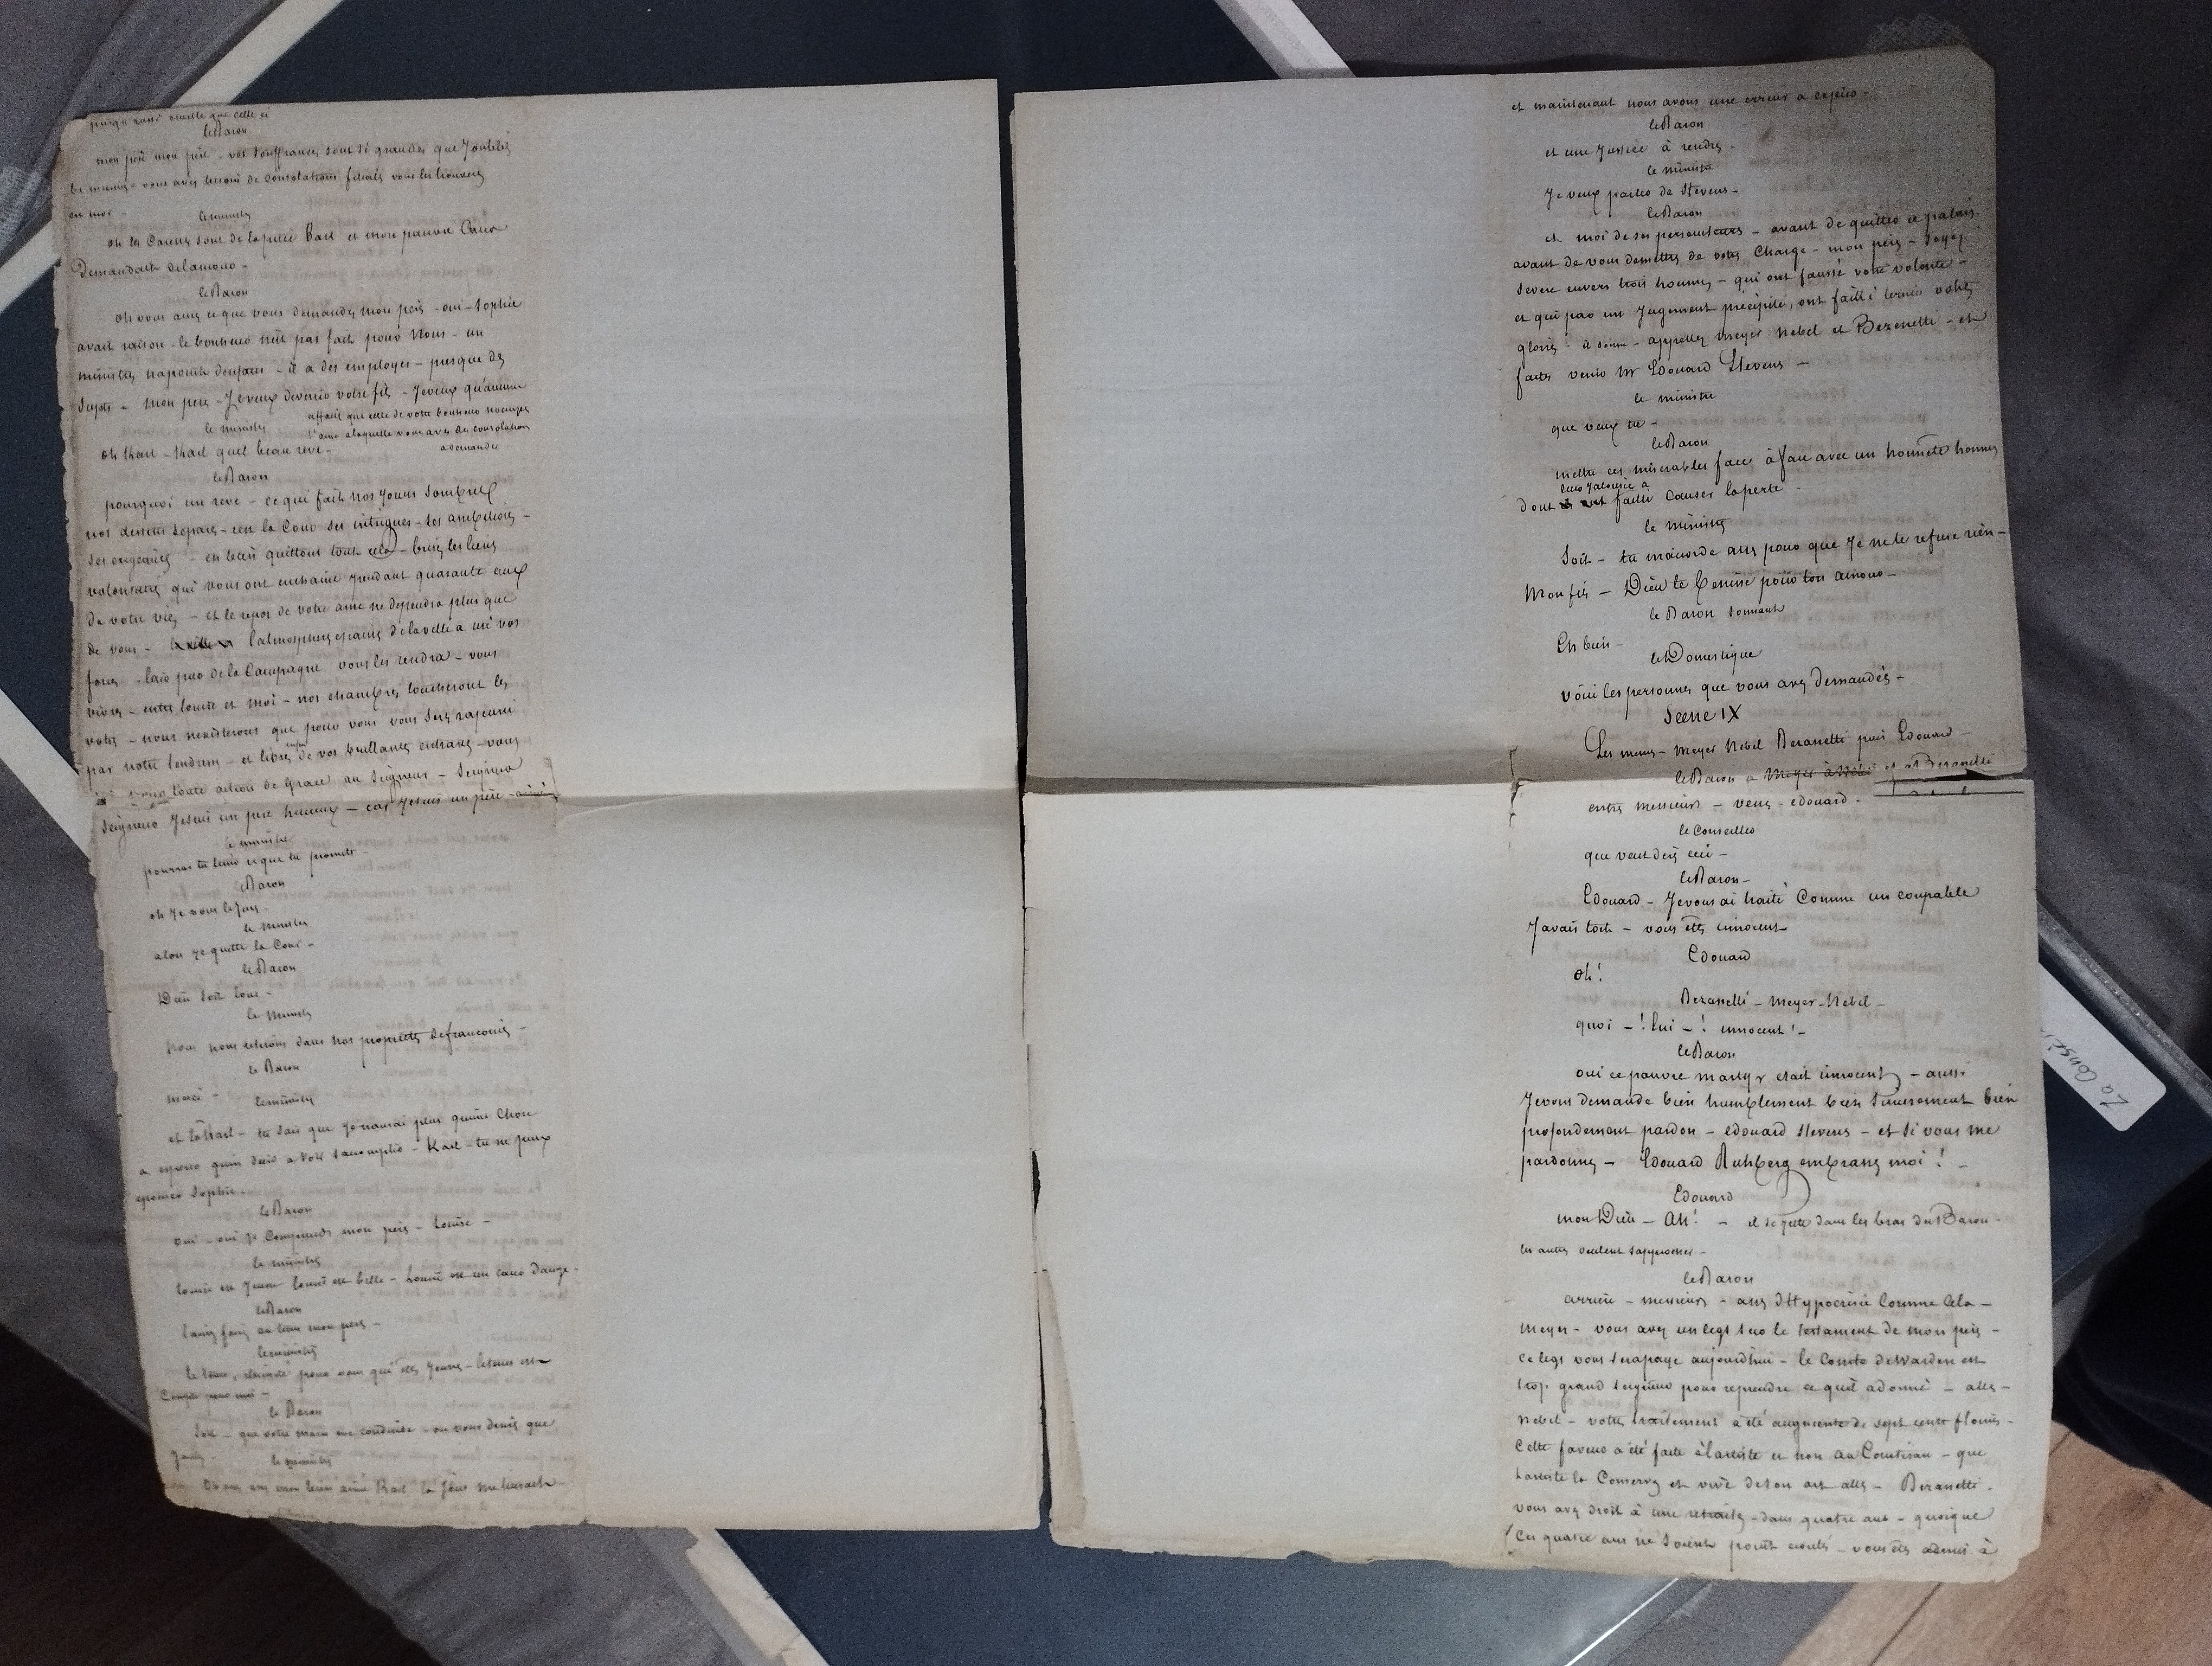 presqu aussi cruelle que celle ci
le Baron
mon père mon père - vos souffrances sont si grandes que J'oublie
les miennes - vous avez besoin de Consolations filiales vous les trouverez
en moi -
le ministre
oh les Caresses sont de la pitié Karl et mon pauvre Cœur
Demandait de l'amour -
le Baron
oh vous aurez ce que vous demandez mon père - oui - Sophie
avait raison - le bonheur n'est pas fait pour Nous - un
ministre n'a point d'enfans - il a des employes - presque des
sujets - Mon père - Je veux devenir votre fils - Je veux qu'aucune
affaire que celle de votre bonheur n'occupe
l'ame a laquelle vous avez des consolations
a demander
le ministre
oh Karl - Karl quel beau reve -
le Baron
pourquoi un reve - ce qui fait nos Jours sombres
nos destins separes - c'est la Cour ses intrigues - ses ambitions -
ses exigences - eh bien quittons tout cela - brisez les liens
volontaires qui vous ont enchainé pendant quarante ans
de votre vie - et le repos de votre ame ne dependra plus que
de vous - l'atmosphere epaisse de la ville a usé vos
forces - l'air pur de la Campagne vous les rendra - vous
vivrez - entre Louise et moi - nos chambres toucheront la
votre - nous n'existerons que pour vous vous serez rajeuni
par notre tendresse - et libre enfin de vos brillantes entraves - vous
toute action de Grace au Seigneur - Seigneur
Seigneur Je suis un pere heureux - car Je suis un père aimé
le ministre
pourras tu tenir ce que tu promets -
le Baron
oh Je vous le Jure -
le ministre
alors Je quitte la Cour -
le Baron
Dieu soit loué -
le ministre
nous nous retirons dans nos propriétés de franconie -
le Baron
merci -
le ministre
et toi Karl - tu sais que Je n'aurai plus qu'une Chose
a esperer qu'un desir a voir s'accomplir - Karl - tu ne peux
epouser Sophie -
le Baron
oui - oui Je Comprends mon père - Louise -
le ministre
Louise est Jeune Louise est belle - Louise est un cœur d'ange -
le Baron
laissez faire au tems mon père -
le ministre
le tems, eternité pour vous qui êtes Jeunes - le tems est
Compté pour moi -
le Baron
Soit - que votre main me conduise - où vous direz que
J'aille -
le ministre
Oh mon bien aimé Karl la Joie me
et maintenant nous avons une erreur a expier -
le Baron
et une Justice à rendre -
le ministre
Je veux parler de Stevens -
le Baron
et moi de ses persecuteurs - avant de quitter ce palais
avant de vous demettre de votre Charge - mon père - soyez
severe envers trois hommes - qui ont faussé votre volonté -
et qui par un Jugement précipité, ont failli ternir votre
gloire - il sonne - appellez Meyer Nebel et Bezanetti - et
faites venir Mr Edouard Stevens -
le ministre
que veux tu -
le Baron
mettre ces miserables face à face avec un honnête homme
leur Jalousie a
dont failli causer la perte -
le ministre
Soit - tu m'accorde assez pour que Je ne te refuse rien -
Mon fils - Dieu te benisse pour ton amour -
le Baron sonnant
Eh bien -
le Domestique
voici les personnes que vous avez demandées -
Scene IX
Les memes - Meyer Nebel Bezanetti puis Edouard -
le Baron a Meyer à Nebel et a Bezanetti
entrez messieurs - venez - edouard -
le Conseiller
que veut dire ceci -
le Baron -
Edouard - Je vous ai traité Comme un coupable
J'avais tort - vous êtes innocent
Edouard
oh !
Bezanetti - Meyer - Nebel -
quoi - ! lui - ! innocent ! -
le Baron
oui ce pauvre martyr etait innocent - aussi
Je vous demande bien humblement bien sincerement bien
profondement pardon - edouard Stevens - et si vous me
pardonnez - Edouard Ruhberg embrassez moi ! -
Edouard
mon Dieu - Ah ! - il se Jette dans les bras du Baron -
les autres veulent s'approcher -
le Baron
arriere - messieurs - assez d'Hypocrisie Comme Cela -
Meyer - vous avez un legs sur le testament de mon père -
ce legs vous sera payé aujourd'hui - le Comte de Warden est
trop grand Seigneur pour reprendre ce qu'il a donné - allez -
Nebel - votre traitement a été augmenté de sept cents florins -
Cette faveur a été faite à l'artiste et non au Courtisan - que
l'artiste la Conserve et vive de son art allez - Bezanetti -
vous avez droit à une retraite - dans quatre ans - quoique
Ces quatre ans ne soient point ecoulés - vous êtes admis à
La Consci